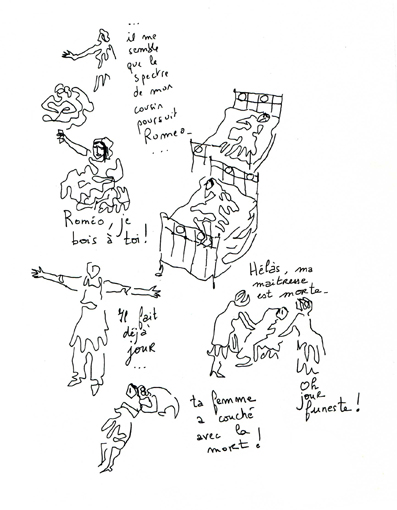 ...
il me
semble
que le
spectre
de mon
cousin
poursuit
Romeo_
...
Roméo, je
bois à toi !
Il fait
déjà
JOUR
...
Hélàs, ma
maitresse
est morte_
oh
jour
funeste !
ta femme
a couché
avec la
mort !